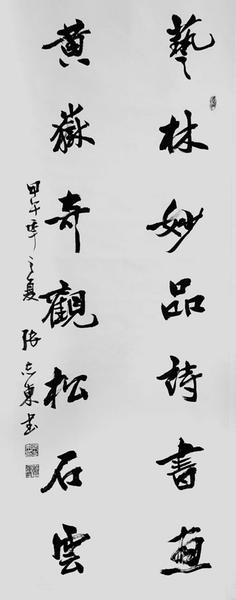 藝林妙品詩書畫
黃嶽奇觀松石雲
甲午年之夏 張志東書